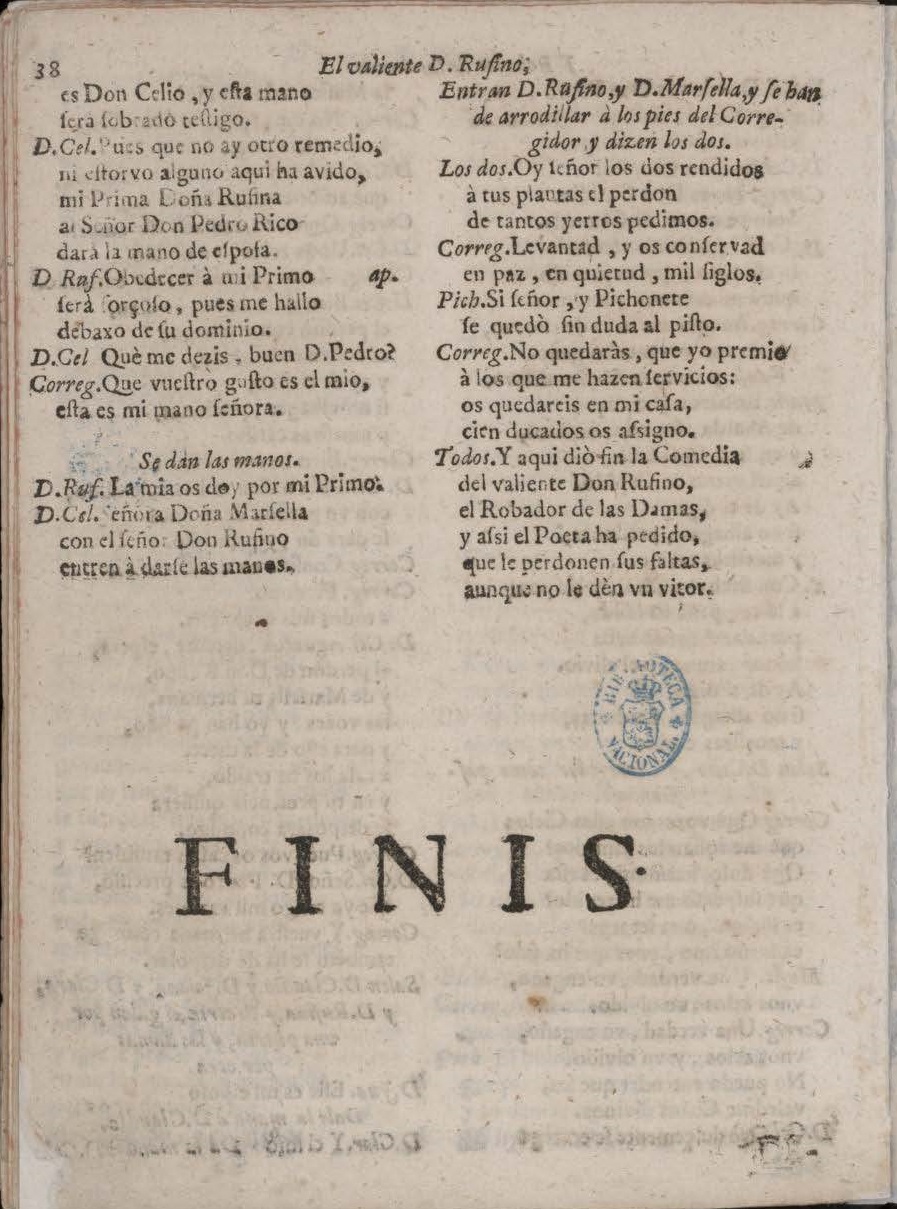 38
El valiente D. Rufino;
es Don Celio , y eſta mano
ſerà ſobradò teſtigo.
D.Cel.Pues que no ay otro remedio,
ni eſtorvo alguno aqui ha avido,
mi Prima Doña Rufina
al Señor Don Pedro Rico
darà la mano de eſpoſa.
D Ruf.Obedecer à mi Primo ap.
ſerà forçoſo, pues me hallo
debaxo de ſu dominio.
D.Cel Què me dezis , buen D.Pedro?
Correg.Que vueſtro guſto es el mio,
eſta es mi mano ſeñora.
Se dàn las manos.
D.Ruf. La mia os doy por mi Primo.
D.Cel. Señora Doña Marſella
con el ſeñor Don Rufino
entren à darſe las manos.
Entran D.Rufino,y D.Marſella,y ſe han
de arrodillar à los pies del Corre-
gidor y dizen los dos.
Los dos.Oy ſeñor los dos rendidos
à tus plantas el perdon
de tantos yerros pedimos.
Correg.Levantad , y os conſervad
en paz , en quietud , mil ſiglos.
Pich.Si ſeñor , y Pichonete
ſe quedò ſin duda al piſto.
Correg.No quedaràs , que yo premio
à los que me hazen ſervicios:
os quedareis en mi caſa,
cien ducados os aſsigno.
Todos.Y aqui diò fin la Comedia
del valiente Don Rufino,
el Robador de las Damas,
y aſsi el Poeta ha pedido,
que le perdonen ſus faltas,
aunque no le dèn vn vitor.
BIBLIOTECA
NACIONAL
FINIS.